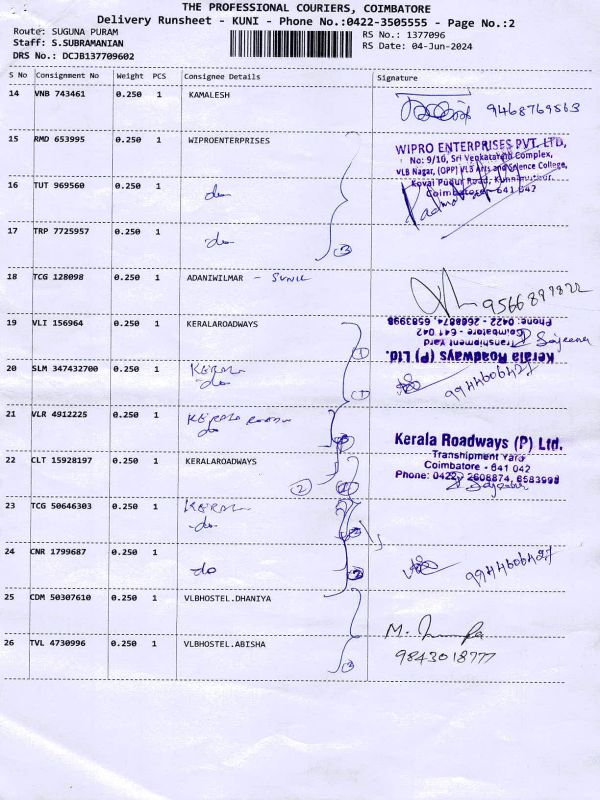 THE PROFESSIONAL COURIERS, COIMBATORE
Delivery Runsheet - KUNI - Phone No.:0422-3505555 - Page No.:2
Route: SUGUNA PURAM
Staff: S.SUBRAMANIAN
DRS No.: DCJB137709602
RS No.: 1377096
RS Date: 04-Jun-2024
S No Consignment No Weight PCS Consignee Details Signature
14 VNB 743461 0.250 1 KAMALESH 9468769563
15 RMD 653995 0.250 1 WIPROENTERPRISES
WIPRO ENTERPRISES PVT. LTD,
No: 9/10, Sri Venkatachala Complex,
VLB Nagar, (OPP) VLB Arts and Science College,
Kovai Pudur Road, Kuniamuthur,
Coimbatore - 641 042
16 TUT 969560 0.250 1 do
17 TRP 7725957 0.250 1 do
3
18 TCG 128098 0.250 1 ADANIWILMAR - SUNIL 9566899822
19 VLI 156964 0.250 1 KERALAROADWAYS
1
Kerala Roadways (P) Ltd.
Transhipment Yard
Coimbatore - 641 042
Phone: 0422 - 2608874, 6583998
Sajeena
20 SLM 347432700 0.250 1 KERALA
do
1
9944606427
21 VLR 4912225 0.250 1 KERALA ROADW
do
Kerala Roadways (P) Ltd.
Transhipment Yard
Coimbatore - 641 042
Phone: 0422 - 2608874, 6583998
Sajeena
22 CLT 15928197 0.250 1 KERALAROADWAYS
2
23 TCG 50646303 0.250 1 KERALA
do
24 CNR 1799687 0.250 1 do
9944606427
25 CDM 50307610 0.250 1 VLBHOSTEL.DHANIYA
26 TVL 4730996 0.250 1 VLBHOSTEL.ABISHA
9843018777